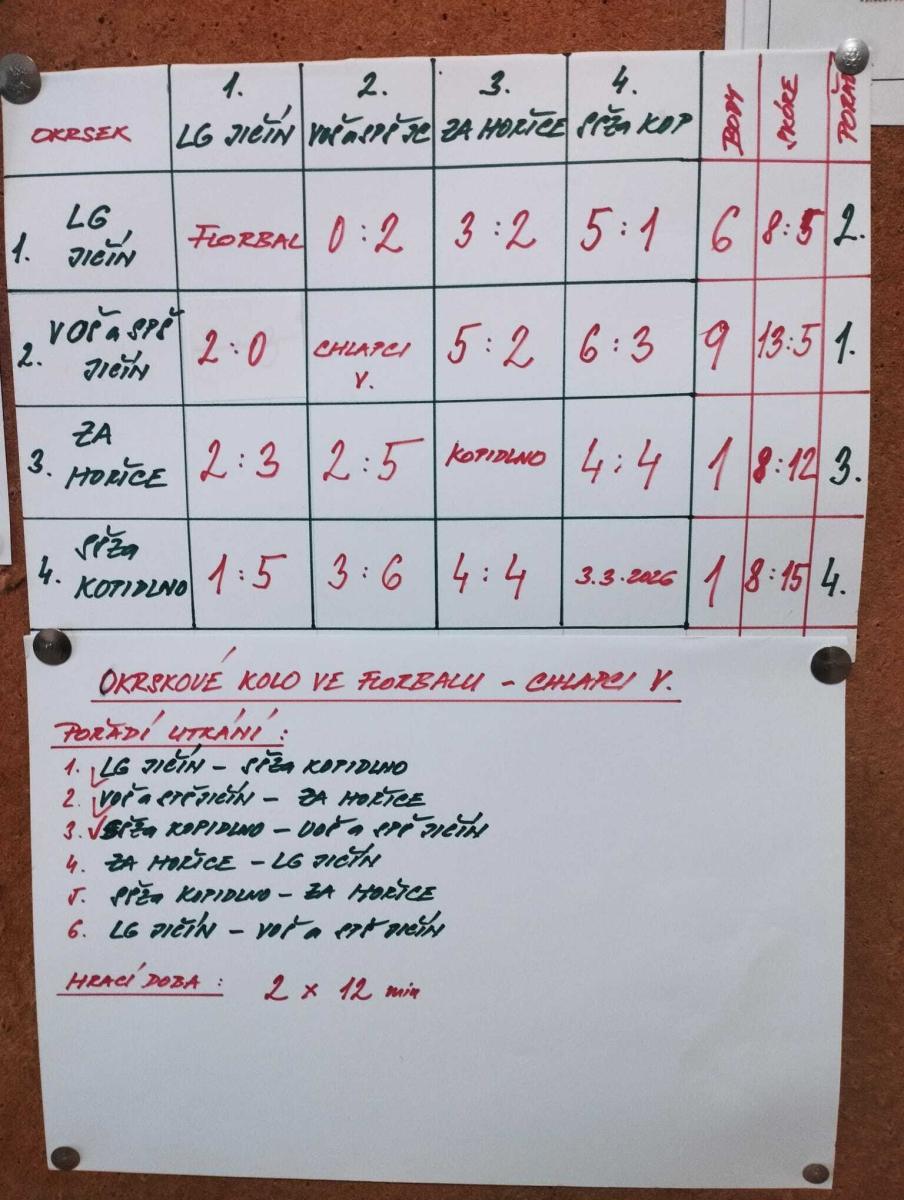 1. 2. 3. 4.
OKRSEK LG JIČÍN VOŠ a SPŠ JC ZA HOŘICE SPŠZa KOP BODY SKÓRE POŘAD
1. LG JIČÍN FLORBAL 0:2 3:2 5:1 6 8:5 2.
2. VOŠ a SPŠ JIČÍN 2:0 CHLAPCI V. 5:2 6:3 9 13:5 1.
3. ZA HOŘICE 2:3 2:5 KOPIDLNO 4:4 1 8:12 3.
4. SŠZa KOPIDLNO 1:5 3:6 4:4 3.3.2026 1 8:15 4.
OKRSKOVÉ KOLO VE FLORBALU - CHLAPCI V.
POŘADÍ UTKÁNÍ:
1. LG JIČÍN - SŠZa KOPIDLNO
2. VOŠ a SPŠ JIČÍN - ZA HOŘICE
3. SŠZa KOPIDLNO - VOŠ a SPŠ JIČÍN
4. ZA HOŘICE - LG JIČÍN
5. SŠZa KOPIDLNO - ZA HOŘICE
6. LG JIČÍN - VOŠ a SPŠ JIČÍN
HRACÍ DOBA: 2 x 12 min